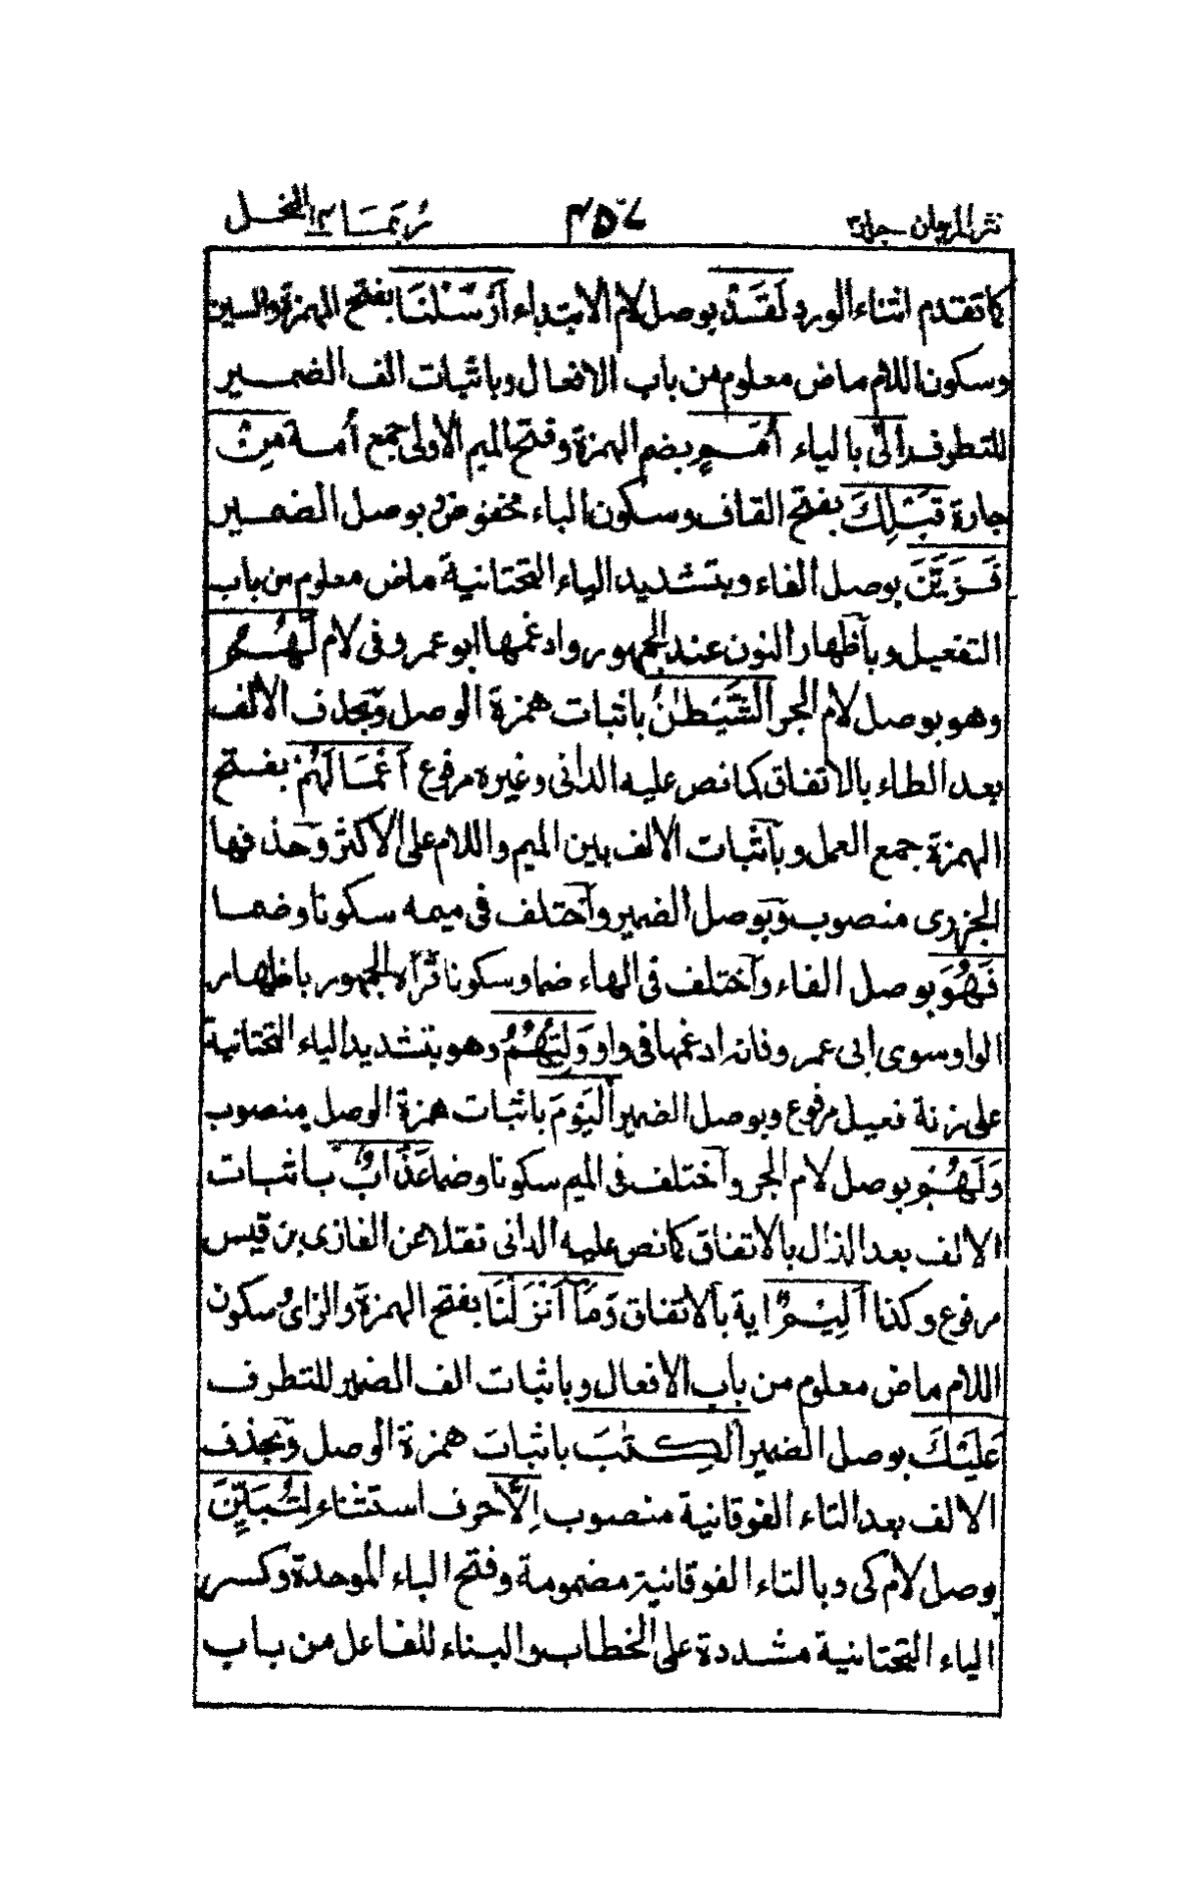 نثر المرجان جلد٣ ٤٥٧ ربما ١٤ النحل
كما تقدم انتفاء الورد لَقَدْ بوصل لام الابتداء أَرْسَلْنَا بفتح الهمزة والسين
وسكون اللام ماض معلوم من باب الافعال وباثبات الف الضمير
للتطرف إِلَىٰ بالياء أُمَمٍ بضم الهمزة وفتح الميم الاولى جمع أمة مِنْ
جارة قَبْلِكَ بفتح القاف وسكون الباء مخفوض وبوصل الضمير
فَزَيَّنَ بوصل الفاء وبتشديد الياء التحتانية ماض معلوم من باب
التفعيل وبآظهار النون عند الجمهور وادغمها ابو عمرو فى لام لَهُمُ
وهو بوصل لام الجر الشَّيْطٰنُ باثبات همزة الوصل وبحذف الالف
بعد الطاء بالاتفاق كما نص عليه الدانى وغيره مرفوع أَعْمَالَهُمْ بفتح
الهمزة جمع العمل وبآثبات الالف بين الميم واللام على الاكثر وحذفها
الجزرى منصوب وبوصل الضمير وآختلف فى ميمه سكونا وضما
فَهُوَ بوصل الفاء وآختلف فى الهاء ضما وسكونا قرآه الجمهور باظهار
الواو سوى ابى عمرو فانه ادغمها فى واو وَلِيُّهُمُ وهو بتشديد الياء التحتانية
على زنة فعيل مرفوع وبوصل الضمير الْيَوْمَ باثبات همزة الوصل منصوب
وَلَهُمْ بوصل لام الجر وآختلف فى الميم سكونا وضما عَذَابٌ باثبات
الالف بعد الذال بالاتفاق كما نص عليه الدانى نقلا عن الغازى بن قيس
مرفوع وكذا أَلِيمٌ اية بالاتفاق وَمَا أَنْزَلْنَا بفتح الهمزة والزاى وسكون
اللام ماض معلوم من باب الافعال وباثبات الف الضمير للتطرف
عَلَيْكَ بوصل الضمير الْكِتٰبَ باثبات همزة الوصل وبحذف
الالف بعد التاء الفوقانية منصوب إِلَّا حرف استثناء لِتُبَيِّنَ
بوصل لام كى وبالتاء الفوقانية مضمومة وفتح الباء الموحدة وكسر
الياء التحتانية مشددة على الخطاب والبناء للفاعل من باب